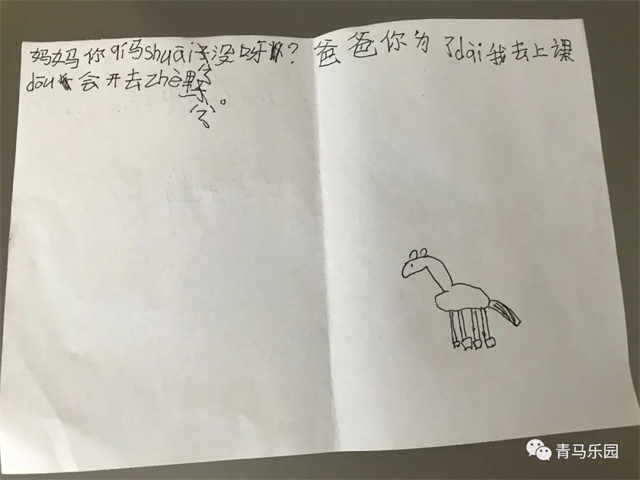 妈妈你qí马shuāi没呀?
dōu会开去zhè
爸爸你为了dài我去上课
青马乐园